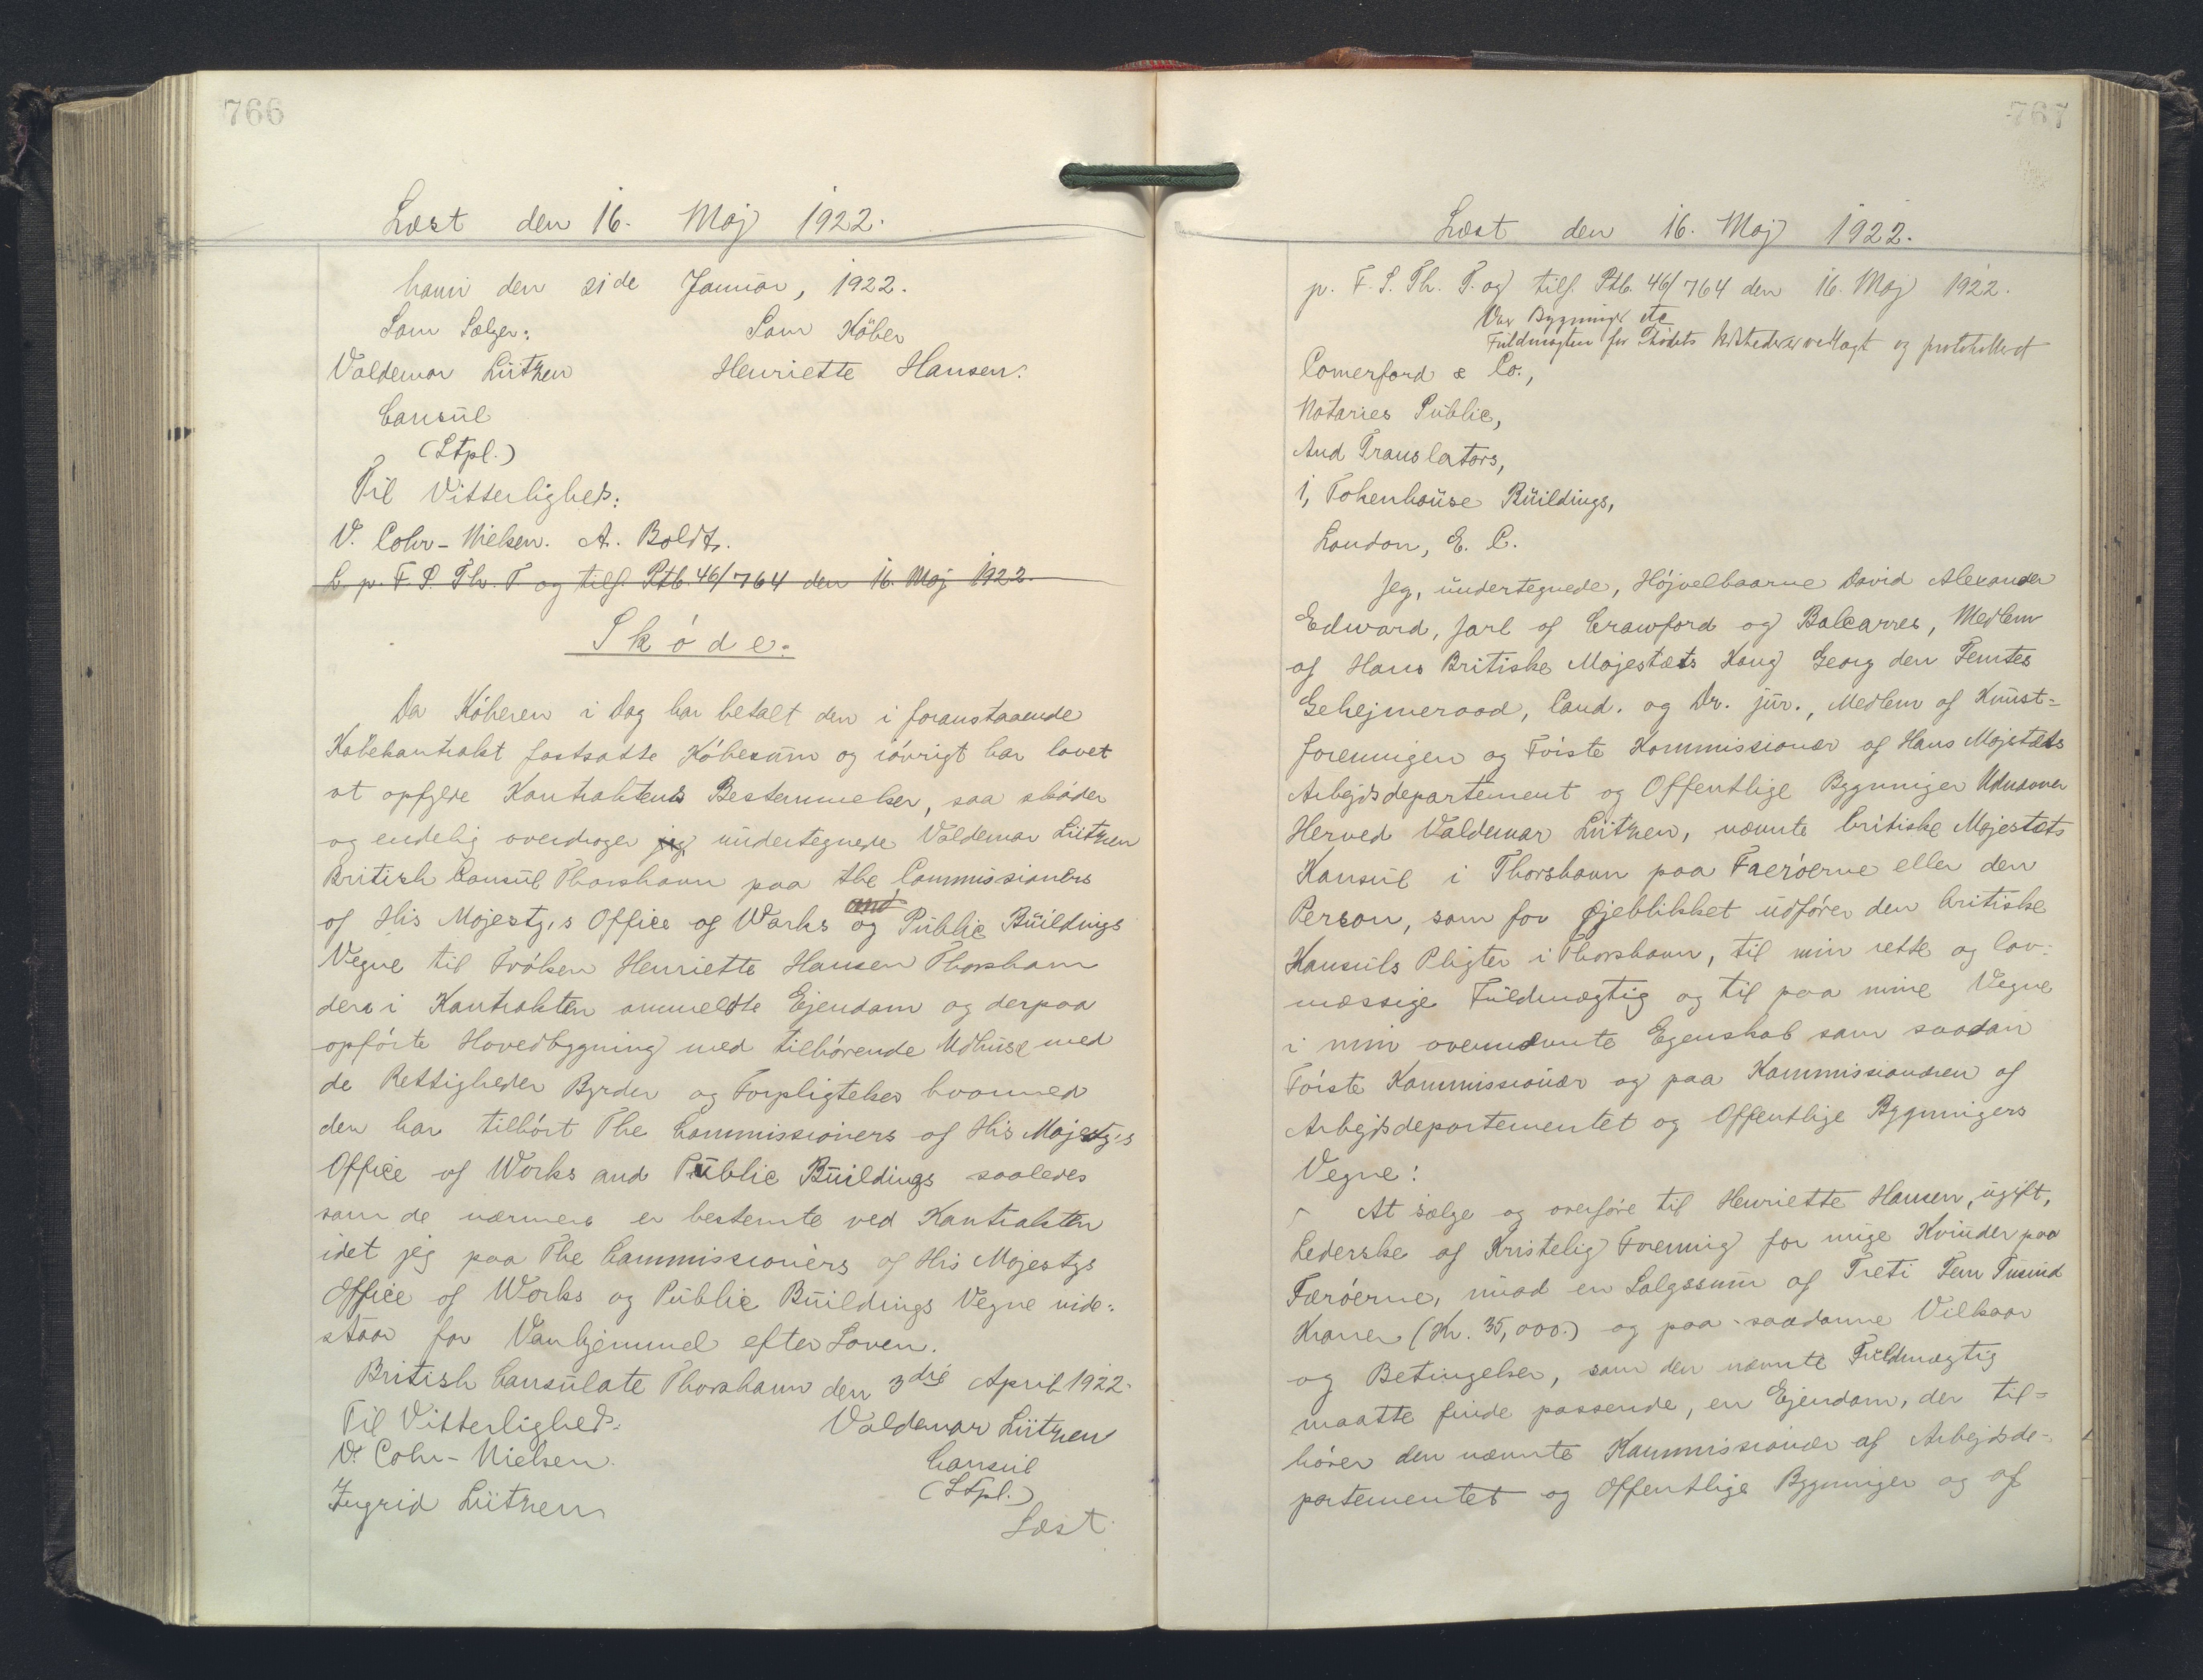 766
Læst den 16. Maj 1922.
havn den 21de Januar, 1922.
Som Sælger: Som Köber
Valdemar Lützen Henriette Hansen.
Consul
(Stpl.)
Til Vitterlighed:
V. Cohr-Nielsen. A. Boldt.
L p. F. S. Th. T og tilf. Ptb. 46/764 den 16. Maj 1922.
Sköde.
Da Köberen i Dag har betalt den i foranstaaende
Köbekontrakt fastsatte Köbesum og iövrigt har lovet
at opfylde Kontraktens Bestemmelser, saa sköder
og endelig overdrager jeg undertegnede Valdemar Lützen
British Consul Thorshavn paa the Commissioners
of His Majesty,s Office of Works og and Public Buildings
Vegne til Fröken Henriette Hansen Thorshavn
den i Kontrakten ommeldte Ejendom og derpaa
opförte Hovedbygning med tilhörende Udhuse med
de Rettigheder Byrder og Forpligtelser hvormed
den har tilhört The Commissioners of His Majesty,s
Office of Works and Public Buildings saaledes
som de nærmere er bestemte ved Kontrakten
idet jeg paa The Commissioners of His Majestys
Office of Works og Public Buildings Vegne inde-
staar for Vanhjemmel efter Loven.
British Consulate Thorshavn den 3die April 1922.
Til Vitterlighed: Valdemar Lützen
V. Cohr-Nielsen. Consul
Ingrid Lützen (Stpl.)
Læst
767
Læst den 16. Maj 1922.
p. F. S. Th. T. og tilf. Ptb. 46/764 den 16. Maj 1922.
Bygninger etc
Fuldmagten for Skødets Udsteder er vedlagt og protokolleret
Comerford & Co.,
Notaries Public,
And Translators,
1, Tokenhouse Buildings,
London, E. C.
Jeg, undertegnede, Højvelbaarne David Alexander
Edward, Jarl of Crawford og Balcarres, Medlem
af Hans Britiske Majestæts Kong Georg den Femtes
Gehejmeraad, Cand. og Dr. jur., Medlem af Kunst-
foreningen og Förste Kommissionær af Hans Majestæts
Arbejdsdepartement og Offentlige Bygninger Udnævner
Herved Valdemar Lützen, nævnte britiske Majestæts
Konsul i Thorshavn paa Faeröerne eller den
Person, som for Øjeblikket udförer den britiske
Konsuls Pligter i Thorshavn, til min rette og lov-
mæssige Fuldmægtig og til paa mine Vegne
i min ovennævnte Egenskab som saadan
Förste Kommissionær og paa Kommissionæren af
Arbejdsdepartementet og Offentlige Bygningers
Vegne:
At sælge og overföre til Henriette Hansen, ugift,
Lederske af Kristelig Forening for unge Kvinder paa
Færöerne, imod en Salgssum af Treti Fem Tusind
Kroner (Kr. 35,000.) og paa saadanne Vilkaar
og Betingelser, som den nævnte Fuldmægtig
maatte finde passende, en Ejendom, der til-
hörer den nævnte Kommissionær af Arbejdsde-
partementet og Offentlige Bygninger og af